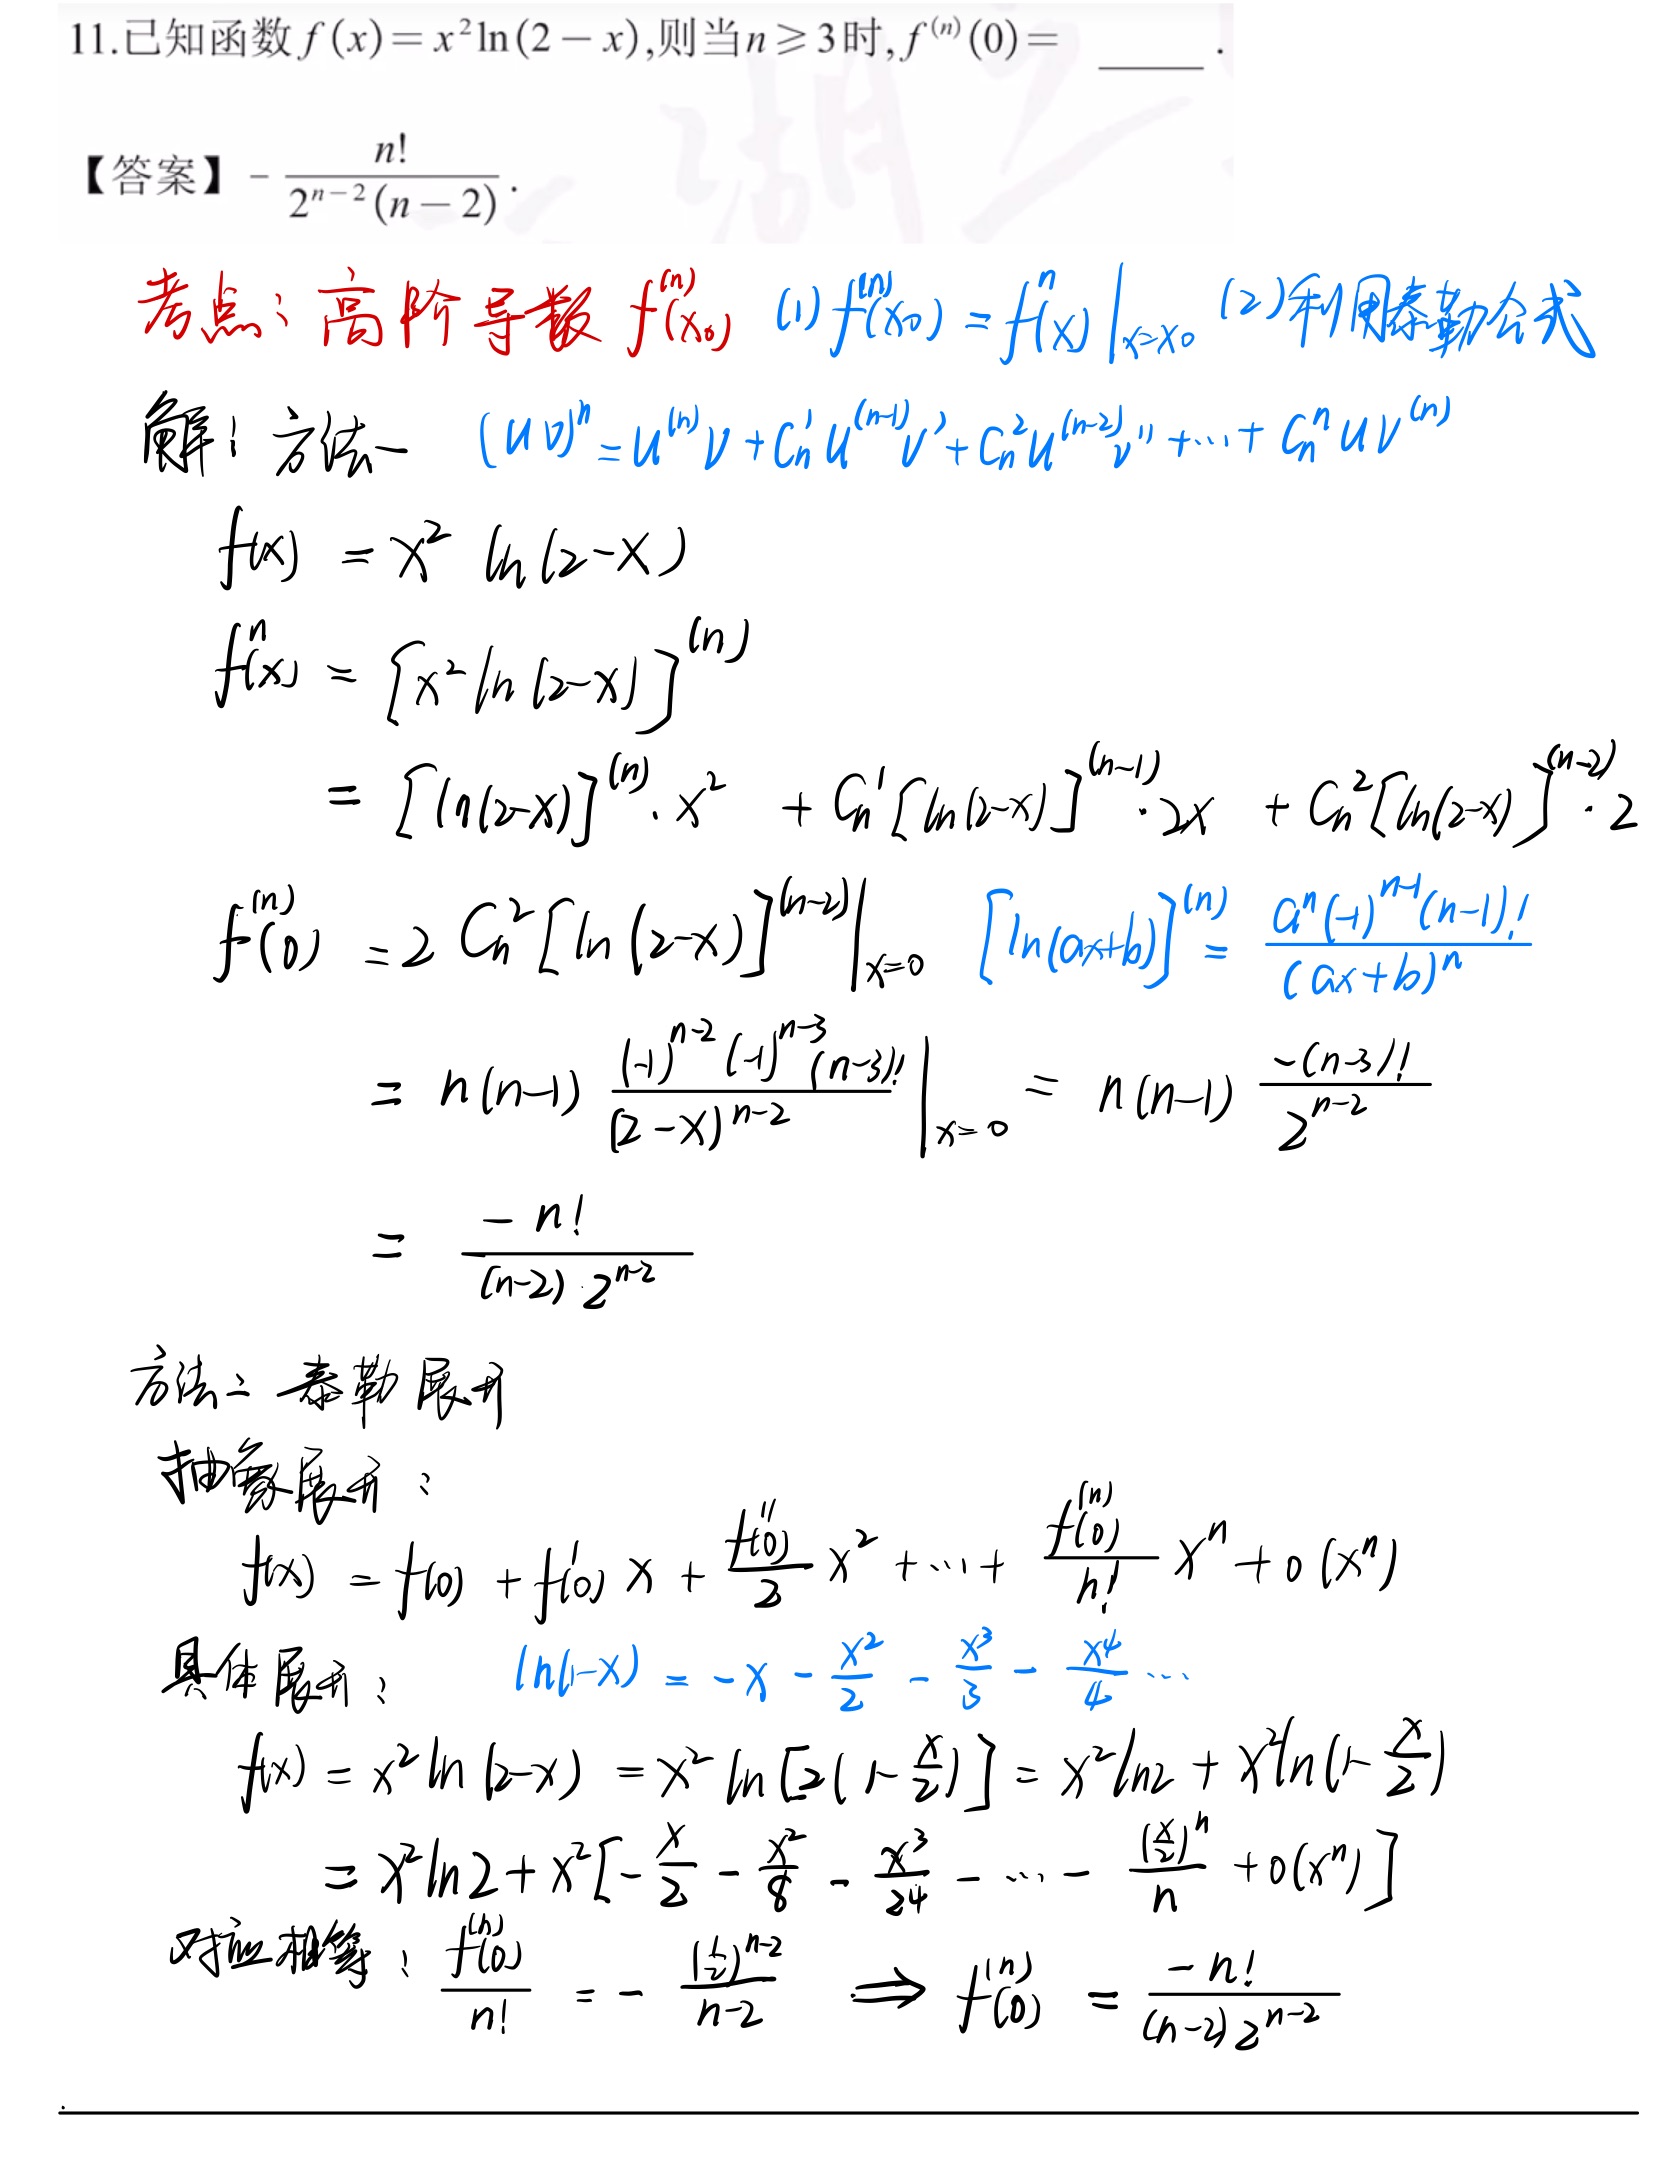 11.已知函数f(x)=x²ln(2-x),则当n≥3时,f⁽ⁿ⁾(0)= ____ .
【答案】- n!/(2ⁿ⁻²(n-2)) .
考点: 高阶导数 f⁽ⁿ⁾(x₀) (1) f⁽ⁿ⁾(x₀) = fⁿ(x)|x=x₀ (2)利用泰勒公式
解: 方法一 (uv)ⁿ = u⁽ⁿ⁾v + Cₙ¹u⁽ⁿ⁻¹⁾v' + Cₙ²u⁽ⁿ⁻²⁾v'' + … + Cₙⁿuv⁽ⁿ⁾
f(x) = x² ln(2-x)
fⁿ(x) = [x² ln(2-x)]⁽ⁿ⁾
= [ln(2-x)]⁽ⁿ⁾·x² + Cₙ¹[ln(2-x)]⁽ⁿ⁻¹⁾·2x + Cₙ²[ln(2-x)]⁽ⁿ⁻²⁾·2
f⁽ⁿ⁾(0) = 2Cₙ²[ln(2-x)]⁽ⁿ⁻²⁾|x=0 [ln(ax+b)]⁽ⁿ⁾ = aⁿ(-1)ⁿ⁻¹(n-1)!/(ax+b)ⁿ
= n(n-1) (-1)ⁿ⁻²(-1)ⁿ⁻³(n-3)!/(2-x)ⁿ⁻² |x=0 = n(n-1) -(n-3)!/2ⁿ⁻²
= -n!/((n-2)·2ⁿ⁻²)
方法二 泰勒展开
抽象展开:
f(x) = f(0) + f'(0)x + f''(0)/2 x² + … + f⁽ⁿ⁾(0)/n! xⁿ + o(xⁿ)
具体展开: ln(1-x) = -x - x²/2 - x³/3 - x⁴/4 …
f(x) = x² ln(2-x) = x² ln[2(1-x/2)] = x²ln2 + x²ln(1-x/2)
= x²ln2 + x²[-x/2 - x²/8 - x³/24 - … - (x/2)ⁿ/n + o(xⁿ)]
对应相等: f⁽ⁿ⁾(0)/n! = -(1/2)ⁿ⁻²/(n-2) ⇒ f⁽ⁿ⁾(0) = -n!/((n-2)2ⁿ⁻²)